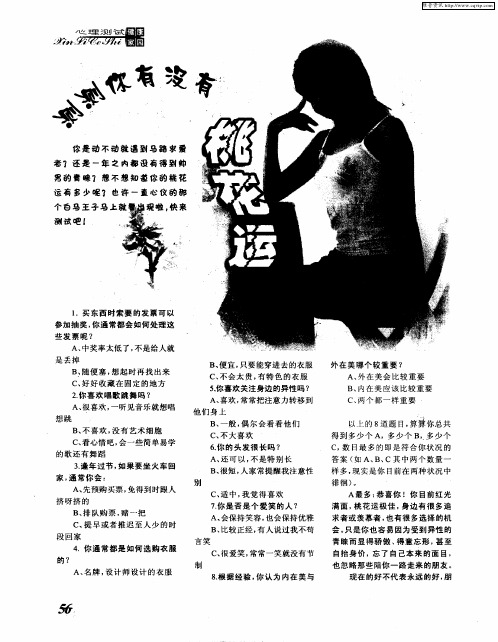 维普资讯 http://www.cqvip.com
心理测试
XinLiCeShi
测测你有没有
桃花运
你是动不动就遇到马路求爱
者？还是一年之内都没有得到帅
男的青睐？想不想知道你的桃花
运有多少呢？也许一直心仪的那
个白马王子马上就要出现啦，快来
测试吧！
1．买东西时索要的发票可以
参加抽奖，你通常都会如何处理这
些发票呢？
A、中奖率太低了，不是给人就
是丢掉
B、随便塞，想起时再找出来
C、好好收藏在固定的地方
2．你喜欢唱歌跳舞吗？
A、很喜欢，一听见音乐就想唱
想跳
B、不喜欢，没有艺术细胞
C、看心情吧，会一些简单易学
的歌还有舞蹈
3．逢年过节，如果要坐火车回
家，通常你会：
A、先预购买票，免得到时跟人
挤呀挤的
B、排队购票，赌一把
C、提早或者推迟至人少的时
段回家
4．你通常都是如何选购衣服
的？
A、名牌，设计师设计的衣服
B、便宜，只要能穿进去的衣服
C、不会太贵，有特色的衣服
5．你喜欢关注身边的异性吗？
A、喜欢，常常把注意力转移到
他们身上
B、一般，偶尔会看看他们
C、不大喜欢
6．你的头发很长吗？
A、还可以，不是特别长
B、很短，人家常提醒我注意性
别
C、适中，我觉得喜欢
7．你是否是个爱笑的人？
A、会保持笑容，也会保持优雅
B、比较正经，有人说过我不苟
言笑
C、很爱笑，常常一笑就没有节
制
8．根据经验，你认为内在美与
外在美哪个较重要？
A、外在美会比较重要
B、内在美应该比较重要
C、两个都一样重要
以上的8道题目，算算你总共
得到多少个A，多少个B，多少个
C，数目最多的即是符合你状况的
答案（如A、B、C其中两个数量一
样多，现实是你目前在两种状况中
徘徊）。
A最多：恭喜你！你目前红光
满面，桃花运极佳，身边有很多追
求者或羡慕者，也有很多选择的机
会。只是你也容易因为受到异性的
青睐而显得骄傲、得意忘形，甚至
自抬身价，忘了自己本来的面目，
也忽略那些陪你一路走来的朋友。
现在的好不代表永远的好，朋
56